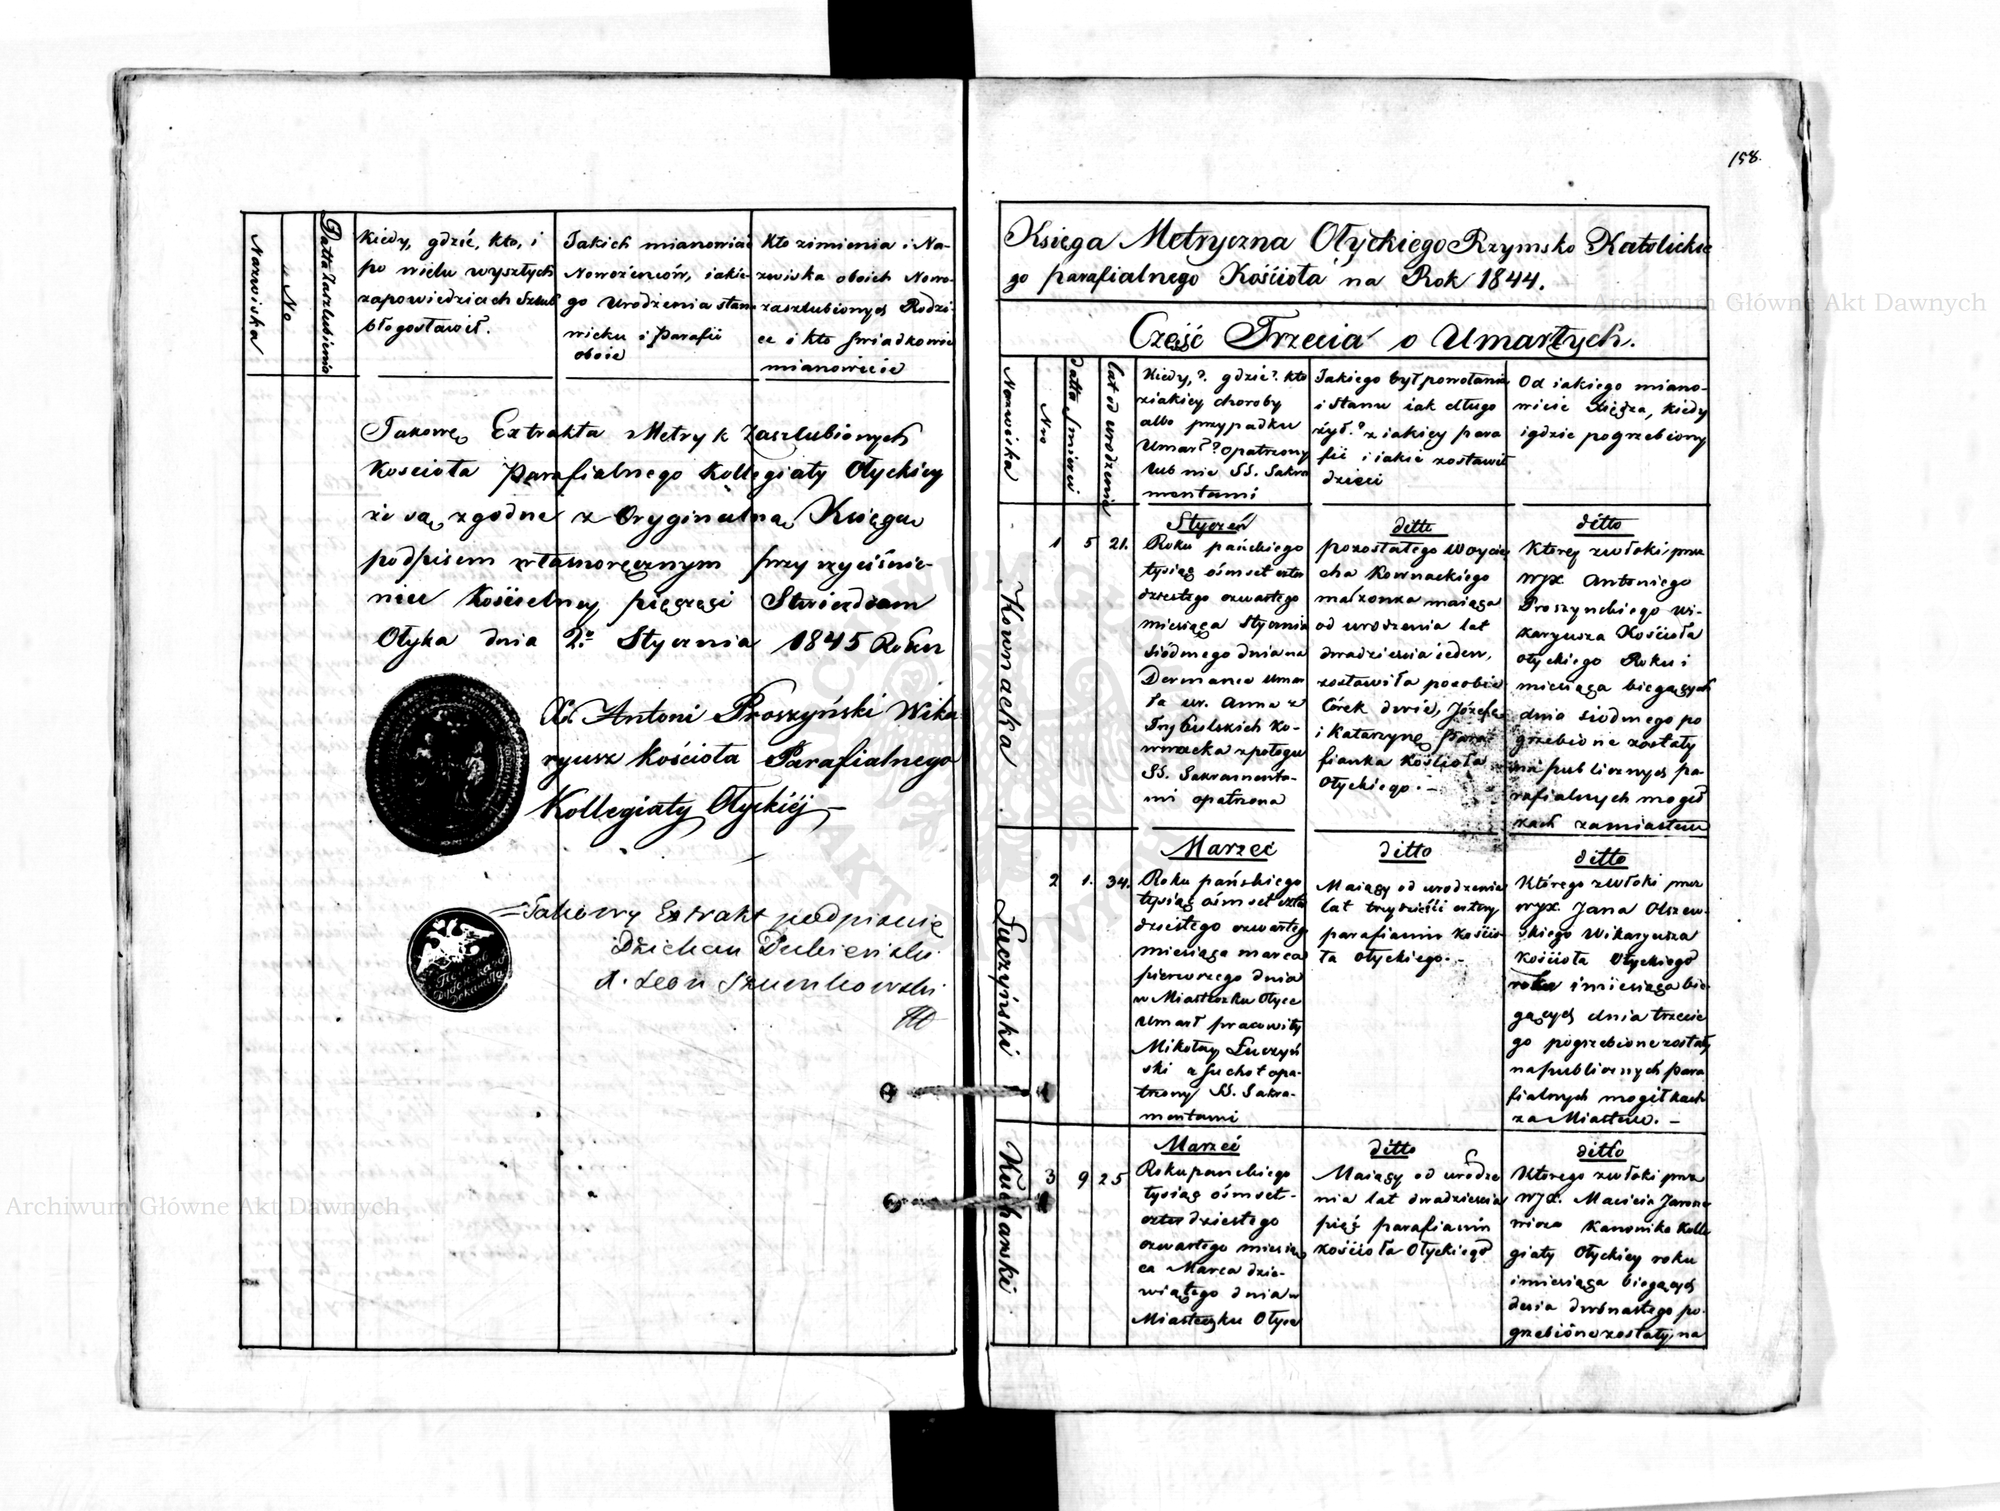 Nazwiska
No
Datta Zaszlubienia
Kiedy, gdzie, kto, i
po wielu wyszłych
zapowiedziach Szlub
błogosławił.
Jakich mianowicie
Nowożeńców, iakie-
go Urodzenia stanu
wieku i Parafii
oboie
Kto zimienia i Na-
zwiska oboich Nowo-
zaszlubionych Rodzi-
ce i kto swiadkowie
mianowicie
Takowe Extrakta Metryk Zaszlubionych
Koscioła Parafialnego Kollegiaty Ołyckiey
że są zgodne z Oryginalną Księgą
podpisem własnoręcznym przy wyciśnie-
niu Kościelney pięczęci Stwierdzam
Ołyka dnia 2º Stycznia 1845 Roku
X. Antoni Proszyński Wika
ryusz Kościoła Parafialnego
Kollegiaty Ołyckiéj
Takowy Extrakt podpisuię
Dziekan Dubieński
X. Leon
158.
Księga Metryczna Ołyckiego Rzymsko Katolickie
go parafialnego Kościoła na Rok 1844.
Część Trzecia o Umarłych.
Nazwiska
Nro
Datta Smierci
lat od urodzenia
Kiedy,? gdzie? kto
ziakiey choroby
albo przypadku
Umarł? opatrzony
lub nie SS. Sakra
mentami
Jakiego był powołania
i stanu iak długo
żył.? z iakiey para
fii i iakie zostawił
dzieci
Od iakiego miano-
wicie Xiędza, kiedy
i gdzie pogrzebiony
Kownacka
1 5 21.
Styczeń
Roku pańskiego
tysiąc ośmset czter
dziestego czwartego
miesiąca Stycznia
siódmego dnia na
Dermance umar
ła ur. Anna z
Trybulskich Ko-
wnacka z połogu
SS. Sakramenta-
mi opatrzona
ditto
pozostałego Woycie
cha Kownackiego
małżonka maiąca
od urodzenia lat
dwadzieścia ieden,
zostawiła po sobie
Córek dwie, Józefę
i Katarzynę Para
fianka Kościoła
Ołyckiego. -
ditto
Której zwłoki prze
wjx Antoniego
Proszynskiego wi-
karyusza Kościoła
Ołyckiego Roku i
miesiąca biegących
dnia siodmego po
grzebione zostały
na publicznych pa-
rafialnych mogił
kach zamiastem
Łuczyński
2 1. 34.
Marzec
Roku pańskiego
tysiąc ośmset czter
dziestego czwartego
miesiąca marca
pierwszego dnia
w Miasteczku Ołyce
Umarł pracowity
Mikołay Łuczyń
ski z suchot opa-
trzony SS. Sakra-
mentami
ditto
Maiący od urodzenia
lat trzydzieści cztery
parafianin Kościo-
ła Ołyckiego. -
ditto
Którego zwłoki prze
wjx. Jana Olszew-
skiego Wikaryusza
Kościoła Ołyckiego
roku i miesiąca bie-
gących dnia trzecie
go pogrzebione zostały
na publicznych para
fialnych mogiłkach
za Miastem. -
Kucharski
3 9 25
Marzec
Roku pańskiego
tysiąc ośmset-
czterdziestego
czwartego miesią
ca Marca dzie-
wiątego dnia w
Miasteczku Ołyce
ditto
Maiący od urodze
nia lat dwadzieścia
pięć parafianin
kościoła Ołyckiego
ditto
Którego zwłoki prze
wjx. Macieia Jarono
wicza Kanonika Kolle
giaty Ołyckiey roku
i miesiąca biegących
dnia dwónastego po-
grzebione zostały na
Archiwum Główne Akt Dawnych
Archiwum Główne Akt Dawnych